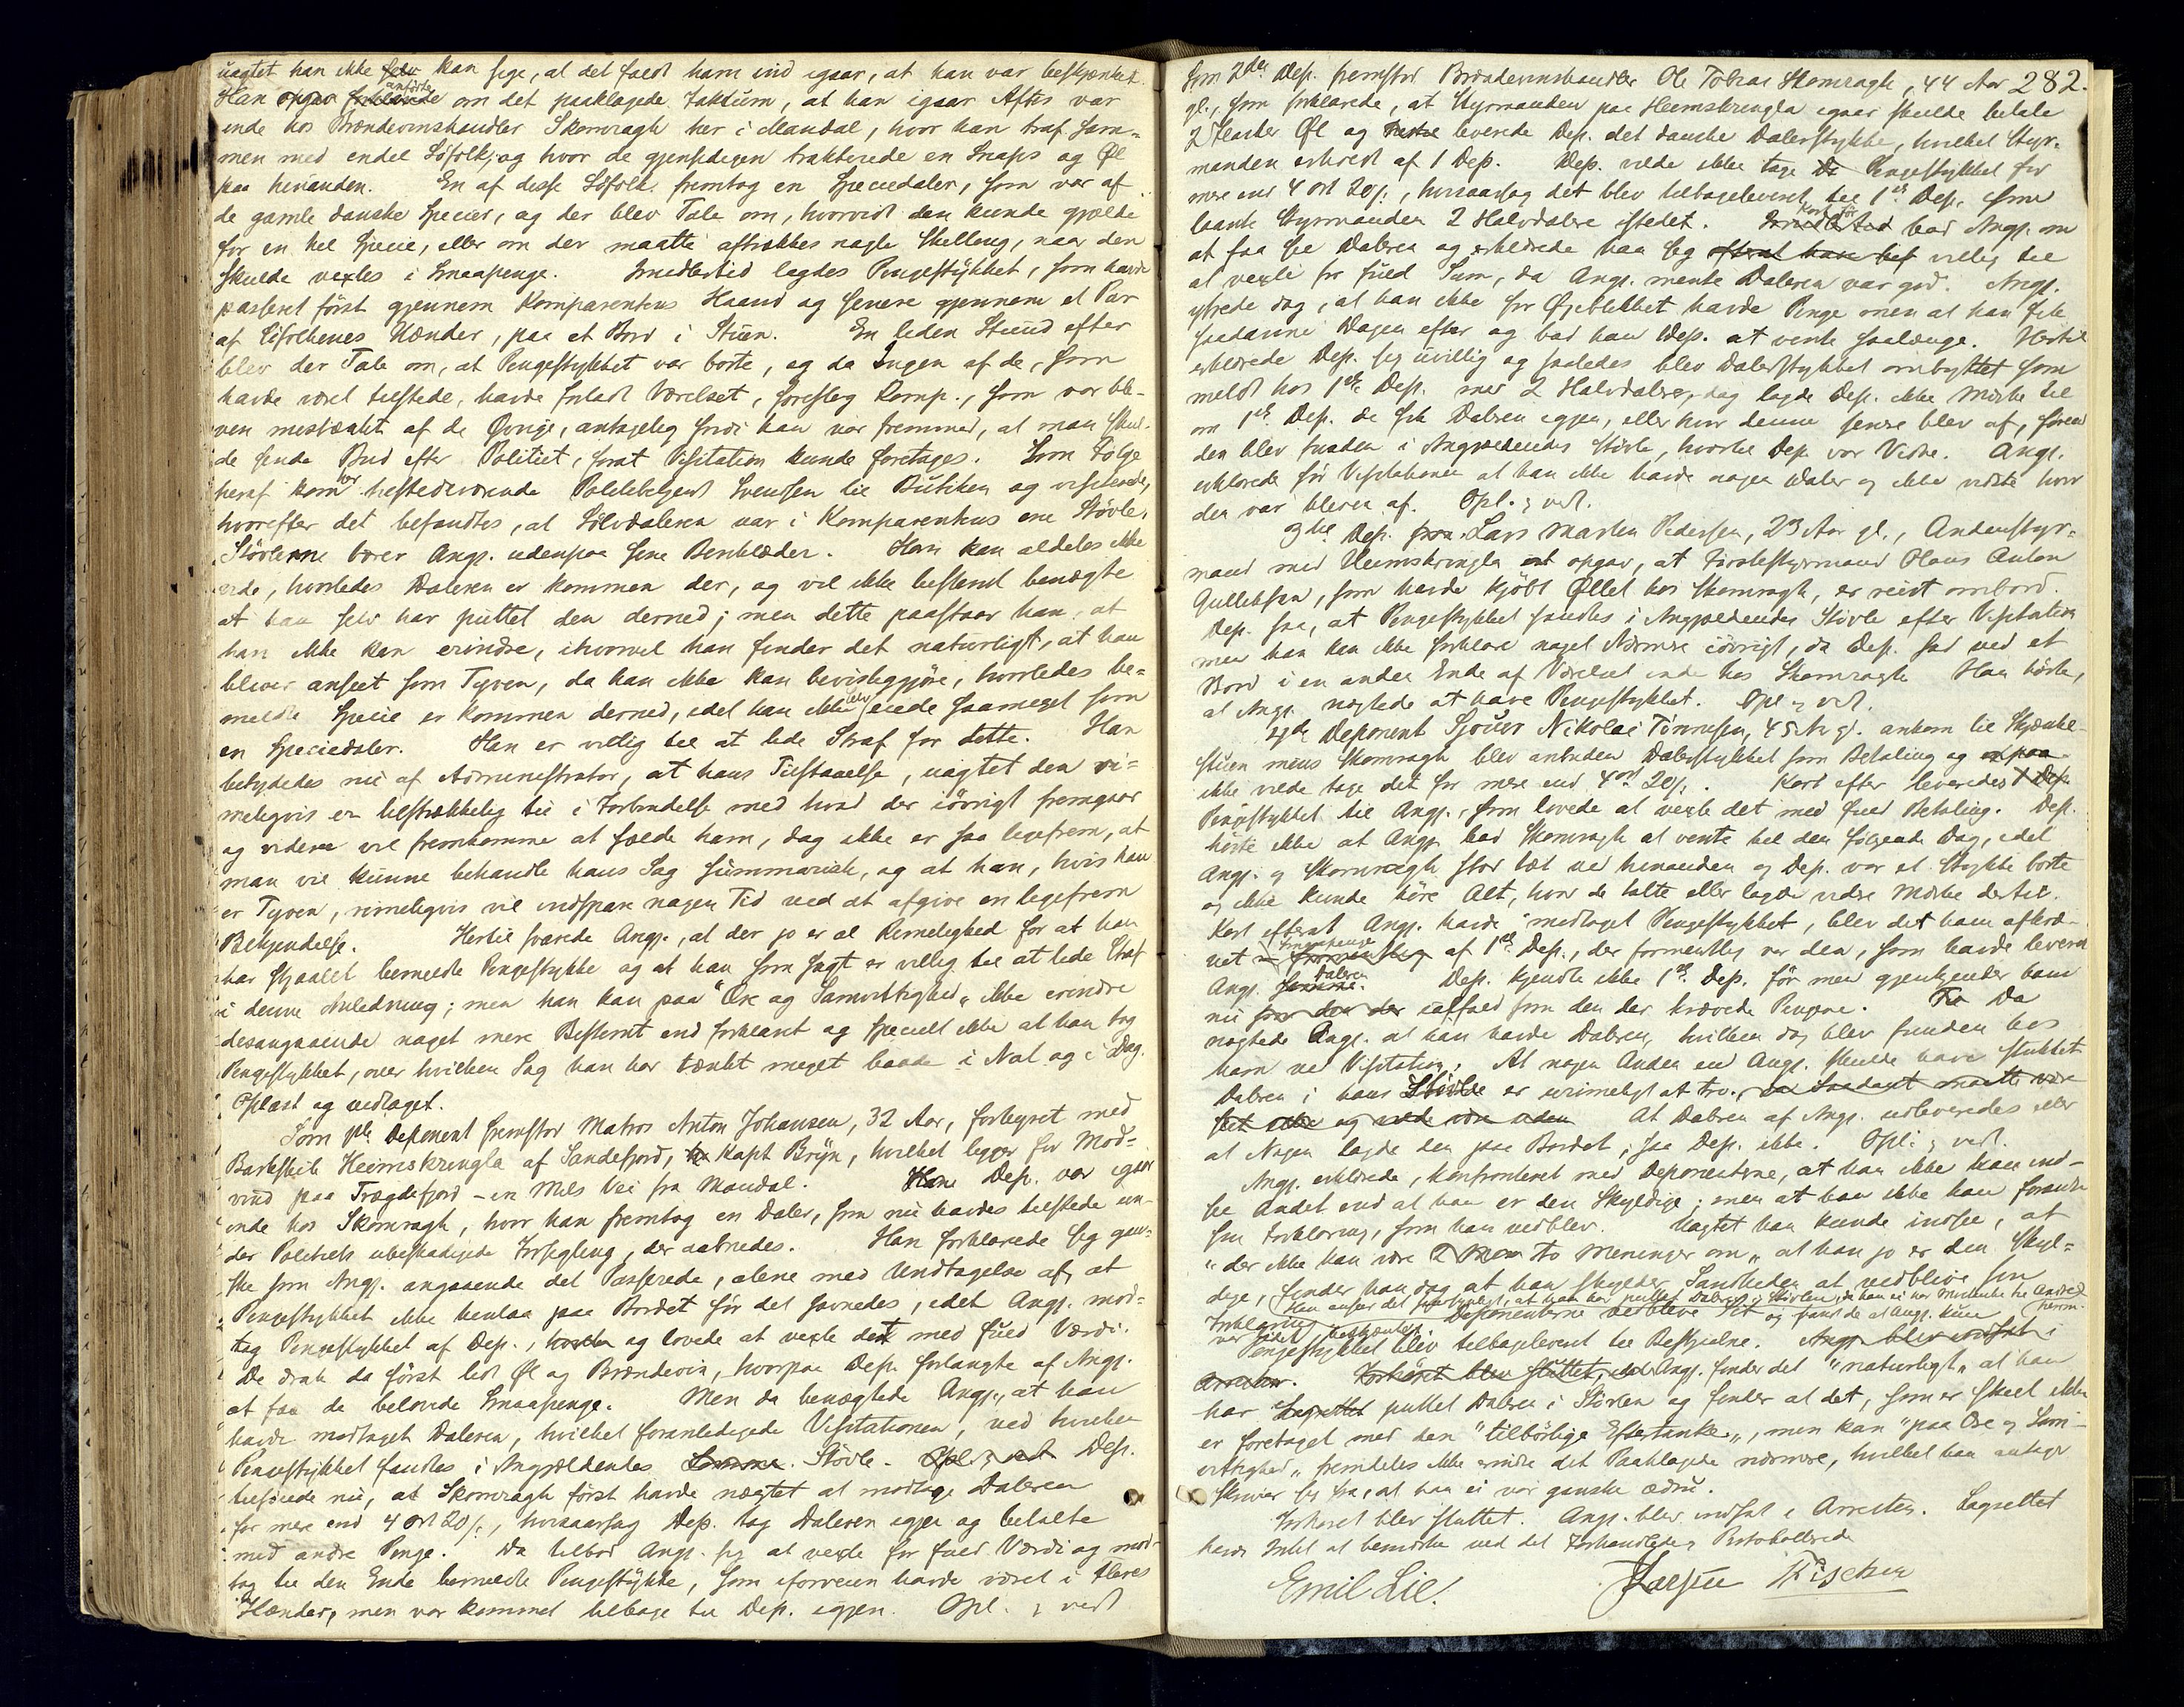 uagtet han ikke selv kan sige, at det faldt ham ind igaar, at han var beskjænket.
Han opgav forklarede anförte om det paaklagede Faktum, at han igaar Aftes var
inde hos Brændevinshandler Skomragh her i Mandal, hvor han traf sam-
men med endel Söfolk, og hvor de gjensidigen trakterede en Snaps og Øl
paa hinanden. En af disse Söfolk fremtog en Speciedaler, som var af
de gamle danske Specier, og der blev Tale om, hvorvidt den kunde gjælde
for en hel Specie, eller om der maatte aftrækkes nogle Skilling, naar den
skulde vexles i Smaapenge. Imidlertid lagdes Pengestykket, som havde
passeret först gjennem Komparentens Haand og senere gjennem et Par
af Söfolkenes Hænder, paa et Bord i Stuen. En liden Stund efter
blev der Tale om, at Pengestykket var borte, og da Ingen af de, som
havde været tilstede, havde forladt Værelset, foreslog Komp., som var ble-
ven mistænkt af de Øvrige, antagelig fordi han var fremmed, at man skul-
de sende Bud efter Politiet, forat Visitation kunde foretages. Som Fölge
heraf kom her tilstedeværende Politibetjent Svendsen til Butiken og visiterede,
hvorefter det befandtes, at Sölvdaleren var i Komparentens ene Stövle.
Stövlerne bærer Angj. udenpaa sine Benklæder. Han kan aldeles ikke
vide, hvorledes Daleren er kommen der, og vil ikke bestemt benægte
at han selv har puttet den derned; men dette paastaar han, at
han ikke kan erindre, ihvorvel han finder det naturligt, at han
bliver anseet som Tyven, da han ikke kan bevisliggjöre, hvorledes be-
meldte Specie er kommen derned, idet han ikke selv eiede saameget som
en Speciedaler. Han er villig til at lide Straf for dette. Han
betydedes nu af Administrator, at hans Tilstaaelse, uagtet den ri-
meligvis er tilstrækkelig til i Forbindelse med hvad der iövrigt fremgaar
og videre vil fremkomme at fælde ham, dog ikke er saa ligefrem, at
man vil kunne behandle hans Sag summarisk, og at han, hvis han
er Tyven, rimeligvis vil indspare nogen Tid ved at afgive en ligefrem
Bekjendelse. Hertil svarede Angj., at der jo er al Rimelighed for at han
har stjaalet bemeldte Pengestykke og at han som sagt er villig til at lide Straf
i denne Anledning; men han kan paa "Ære og Samvittighed" ikke erindre
desangaaende noget mere Bestemt end forklaret og specielt ikke at han tog
Pengestykket, over hvilken Sag han har tænkt meget baade i Nat og i Dag.
Oplæst og vedtaget.
Som 1ste Deponent fremstod Matros Anton Johansen, 32 Aar, forhyret med
Barkskib Heimskringla af Sandefjord, Kapt Bryn, hvilket ligger for Mod-
vind paa Trægdefjord - en Mils Vei fra Mandal. Hans Dep. var igaar
inde hos Skomragh, hvor han fremtog en Daler, som nu havdes tilstede un-
der Politiets ubeskadigede Forsegling, der aabnedes. Han forklarede sig gan-
ske som Angj. angaaende det Passerede, alene med Undtagelse af, at
Pengestykket ikke henlaa paa Bordet för det savnedes, idet Angj. mod-
tog Pengestykket af Dep., og lovede at vexle det med fuld Værdi.
De drak da först lidt Øl og Brændevin, hvorpaa Dep. forlangte af Angj.
at faa de belovede Smaapenge. Men da benægtede Angj., at han
havde modtaget Daleren, hvilket foranledigede Visitationen, ved hvilken
Pengestykket fandtes i Angjældendes Lomme. Stövle. Opl. & vedt. Dep.
tilföiede nu, at Skomragh först havde nægtet at modtage Daleren
for mere end 4 ort 20 s., hvisaarsag Dep. tog Daleren igjen og betalte
med andre Penge. Da tilbød Angj. sig at vexle for fuld Værdi og mod-
tog til den Ende bemeldte Pengestykke, som iforveien havde været i Fleres
Hænder, men var kommet tilbage til Dep. igjen. Opl. & vedt.
282.
Som 2den Dep. fremstod Brændevinshandler Ole Tobias Skomragh, 44 Aar
gl., som forklarede, at Styrmanden paa Heimskringla igaar skulde betale
2 Flasker Øl og leverede Dep. det danske Dalerstykke, hvilket Styr-
manden erholdt af 1 Dep. Dep. vilde ikke tage Da Pengestykket for
mere end 4 ort 20 s., hvisaarsag det blev tilbageleveret til 1ste Dep. som
laante Styrmanden 2 Halvdalere istedet. Imidlertid Kort för bad Angj. om
at faa see Daleren og erklærede han sig villig til
at vexle for fuld Sum, da Angj. mente Daleren var god. Angj.
yttrede dog, at han ikke for Øieblikket havde Penge men at han fik
saadanne Dagen efter og bad han Dep. at vente saalænge. Hertil
erklærede Dep. sig uvillig og saaledes blev Dalerstykket ombyttet som
meldt hos 1ste Dep. med 2 Halvdalere, dog lagde Dep. ikke Mærke til
om 1ste Dep. da fik Daleren igjen, eller hvor denne senere blev af, förend
den blev funden i Angjældendes Stövle, hvortil Dep. var Vidne. Angj.
erklærede för Visitationen at han ikke havde nogen Daler og ikke vidste hvor
den var bleven af. Opl. & vedt.
3die Dep. Lars Martin Pedersen, 23 Aar gl., Andenstyr-
mand med Heimskringla opgav, at Förstestyrmand Hans Anton
Gulliksen, som havde kjöbt Øllet hos Skomragh, er reist ombord.
Dep. saa, at Pengestykket fandtes i Angjældendes Stövle efter Visitation
men han kan ikke forklare noget Nærmere iövrigt, da Dep. sad ved et
Bord i en anden Ende af Værelset inde hos Skomragh. Han hörte,
at Angj. nægtede at have Pengestykket. Opl. & vedt.
4de Deponent Sjouer Nikolai Tönnesen, 45 Aar gl. ankom til Skjænke-
stuen mens Skomragh blev anbuden Dalerstykket som Betaling og
ikke vilde tage det for mere end 4 ort 20 s. Kort efter leveredes
Pengestykket til Angj., som lovede at vexle det med fuld Betaling. Dep.
hörte ikke at Angj. bad Skomragh at vente til den fölgende Dag, idet
Angj. og Skomragh stod tæt ved hinanden og Dep. var et Stykke borte
og ikke kunde höre Alt, hvad de talte eller lagde videre Mærke dertil.
Kort efterat Angj. havde modtaget Pengestykket, blev det ham afkræ-
vet Smaapenge af 1ste Dep., der formentlig var den, som havde leveret
Angj. Daleren. Dep. kjendte ikke 1ste Dep. för men gjenkjender ham
nu ialfald som den der krævede Pengene. Da
nægtede Angj. at han havde Daleren, hvilken dog blev funden hos
ham ved Visitation. At nogen Anden end Angj. skulde have stukket
Daleren i hans Stövle er urimeligt at tro, da Saadant maatte være
seet og vilde være uden At Daleren af Angj. udleveredes eller
at Nogen lagde den paa Bordet, saa Dep. ikke. Opl. & vedt.
Angj. erklærede, konfronteret med Deponenterne, at han ikke kan ind-
see Andet end at han er den Skyldige; men at han ikke kan forandre
sin Forklaring, som han vedblev. Uagtet han kunde indsee, at
"der ikke kan være 2 Men to Meninger om" at han jo er den Skyl-
dige, finder han dog at han skylder Sandheden at vedblive sin
Forklaring. Deponenterne vedbleve Sit og fandt de at Angj. kun
var lidet beskjænket. Han anser det
Pengestykket blev tilbageleveret til Bestjaalne. Angj. blev indsat i
Arresten. Forhöret blev sluttet, idet Angj. finder det "naturligt" at han
har Lagrettet puttet Daleren i Stövlen og finder at det, som er skeet ikke
er foretaget med den "tilbörlige Eftertanke", men kan "paa Ære og Sam-
vittighed" fremdeles ikke erindre det Paaklagede nærmere, hvilket han antager
skriver sig fra, at han ei var ganske ædru.
Forhöret blev sluttet. Angj. blev indsat i Arresten. Lagrettet
havde Intet at bemærke ved det Forhandlede & Protokollerede
Emil Lie. Fischer